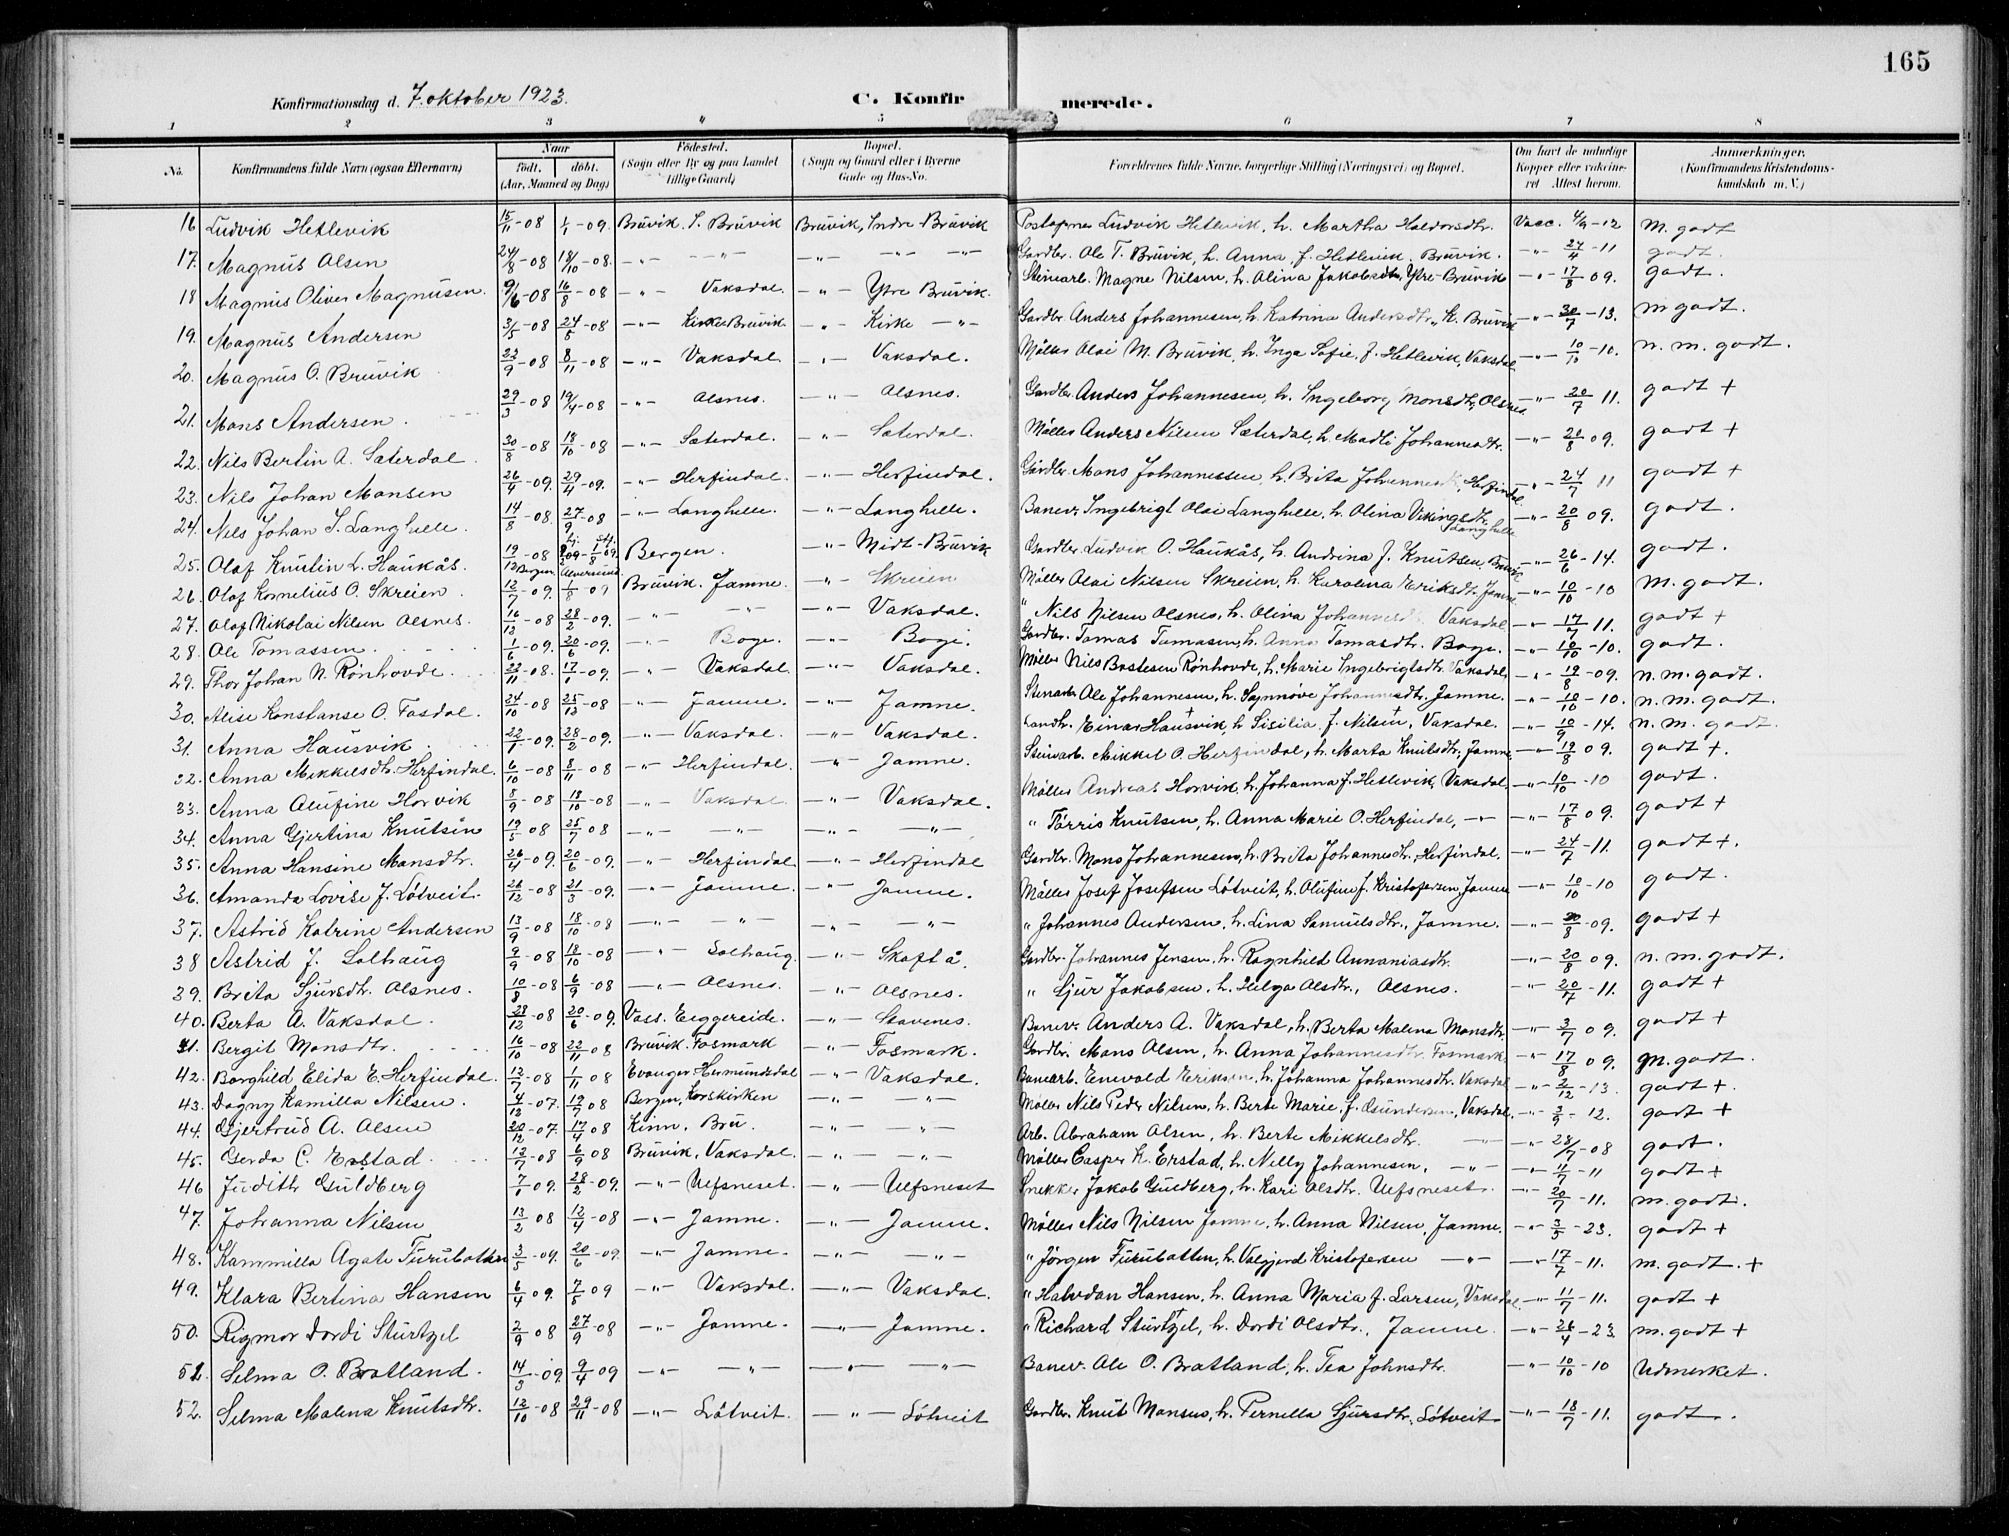 165
Konfirmationsdag d. 7. oktober 1923.
C. Konfirmerede.
1 2 3 4 5 6 7 8
No. Konfirmandens fulde Navn (ogsaa Efternavn) Naar födt. döbt. (Aar, Maaned og Dag) Födested. (Sogn eller By og paa Landet tillige Gaard) Bopæl. (Sogn og Gaard eller i Byerne Gade og Hus-No. Forældrenes fulde Navne, borgerlige Stilling (Næringsvei) og Bopæl. Om havt de naturlige Kopper eller vakcineret Attest herom. Anmærkninger. (Konfirmandens Kristendomskundskab m. V.)
16 Ludvik Hetlevik 15/11-08 1/1-09. Bruvik. I. Bruvik Bruvik, Indre-Bruvik Ludvik Hetlevik, h. Martha Haldorsdtr. Vacc. 4/9-12 M. godt
17. Magnus Olsen 24/8-08 18/10-08. -"- -"- -"- -"- Gardbr. Ole T. Bruvik, h. Anna, f. Hetlevik. Bruvik. -"- 24/4-11 godt.
18 Magnus Oliver Magnusen. 9/6-08 16/8-08 -"- Vaksdal. -"- Ytre Bruvik. Steinarb. Magne Nilsen, h. Alina Jakobsdtr, Ytre-Bruvik -"- 17/8 09. godt.
19. Magnus Andersen 3/5-08 24/5-08 -"- Kirke Bruvik. -"- Kirke -"- Gardbr. Anders Johannesen, h. Katrina Andersdtr., K. Bruvik -"- 30/7-13. m godt.
20. Magnus O. Bruvik 22/9-08 8/11-08 -"- Vaksdal. -"- Vaksdal. Möller Olai M. Bruvik, h. Inga Sofie, f. Hetlevik, Vaksdal -"- 10/10-10. n. m. godt.
21. Mons Andersen. 29/3-08 19/4-08 -"- Olsnes. -"- Olsnes. Gardbr. Anders Johannesen, h. Ingeborg Monsdtr, Olsnes -"- 20/7 11. godt +
22. Nils Bertin A. Sæterdal 30/8-08 18/10-08 -"- Sæterdal. -"- Sæterdal. Möller Anders Nilsen Sæterdal, h. Madli Johannesdtr. -"- 20/8 09. godt +
23. Nils Johan Monsen 26/4-09. 29/4-09. -"- Herfindal. -"- Herfindal. Gardbr. Mons Johannessen, h. Brita Johannesdtr, Herfindal -"- 24/7 11 godt +
24. Nils Johan I. Langhelle. 14/8-08. 27/9-08 -"- Langhelle. -"- Langhelle. Banev. Ingebrigt Olai Langhelle, h. Olina Vikingsdtr. Langhelle -"- 20/8 09. godt.
25. Olaf Knutin L. Haukås. 19/12-08 Bergen Alversund Bergen. -"- Midt-Bruvik Gardbr. Ludvik O. Haukås, h. Andrina f. Knutsen, Bruvik -"- 26/6-14. godt.
26. Olaf Kornelius O. Skreien. 12/7-09. 1/8-09 Bruvik. Jamne. -"- Skreien Möller Olai Nilsen Skreien, h. Karolina Eriksdtr. Jamne -"- 10/10-10 M. godt.
27. Olaf Nikolai Nilsen Olsnes. 16/12-08 28/2-09. -"- -"- -"- Vaksdal. " Nils Nilsen Olsnes, h. Olina Johannesdtr. Vaksdal -"- 17/7 11. godt +
28. Ole Tomassen. 1/6-09. 20/6-09. -"- Boge. -"- Boge. Gardbr. Tomas Tomasen, h. Anna Tomasdtr. Boge. -"- 10/10-10. godt.
29. Thor Johan N. Rönhovde. 22/11-08. 17/1-09. -"- Vaksdal -"- Vaksdal. Möller Nils Bostesen Rönhovde, h. Marie Ingebrigtsdtr. Vaksdal, -"- 19/8-09. n. m. godt.
30. Alise Konstanse O. Fosdal. 24/10-08 25/12-08 -"- Jamne. -"- Jamne. Steinarb. Ole Johannesen, h. Synnöve Johannesdtr. Jamne. -"- 10/10-10. n. m. godt.
31. Anna Hausvik 22/1-09. 28/2-09. -"- Vaksdal. -"- Vaksdal. Landh. Einar Hausvik, h. Sisilia f. Nilsen, Vaksdal. -"- 10/9-14. n. m. godt
32. Anna Mikkelsdtr. Herfindal. 6/10-08 8/11-08 -"- Herfindal. -"- Jamne. Steinarb. Mikkel O. Herfindal, h. Marta Knutsdtr, Jamne, -"- 19/8 09. godt +.
33. Anna Olufine Horvik 8/9-08 18/10-08 -"- Vaksdal -"- Vaksdal. Möller Andreas Horvik, h. Johanna f. Hetlevik, Vaksdal -"- 10/10-10 godt.
34. Anna Gjertina Knutsen 19/5-08 25/7 08 -"- -"- -"- -"- " Torris Knutsen, h. Anna Marie O. Herfindal, -"- -"- 17/8 09. godt +
35. Anna Hansine Monsdtr. 26/4-09. 20/6-09. -"- Herfindal -"- Herfindal Gardbr. Mons Johannesen, h. Brita Johannesdtr., Herfindal. -"- 24/7-11. godt +.
36. Amanda Lovise J. Lötveit. 26/12-08 21/3-09. -"- Jamne. -"- Jamne. Möller Josef Josefsen Lötveit, h. Olufine f. Kristofersen, Jamne -"- 10/10-10 godt.
37. Astrid Katrine Andersen 13/9-08 18/10-08 -"- -"- -"- -"- " Johannes Andersen, h. Lina Samuelsdtr., Jamne. -"- 20/8-09. godt +
38 Astrid J. Solhaug 9/9-08 18/10-08 -"- Solhaug. -"- Skoftå. Gardbr. Johannes Jensen, h. Ragnhild Annaniasdtr. -"- 20/8 09. n. m. godt.
39. Brita Sjursdtr. Olsnes. 10/8-08 6/9-08 -"- Olsnes. -"- Olsnes. " Sjur Jakobsen, h. Helga Olsdtr., Olsnes. -"- 20/7-11. godt +
40. Berta A. Vaksdal. 28/12-08 20/6-09. Voss. Eggereide. -"- Stavenes. Banev. Anders A. Vaksdal, h. Berta Malena Monsdtr. -"- 3/7 09. godt +
41. Bergit Monsdtr. 16/10-08 22/11 08 Bruvik. Fosmark -"- Fosmark. Gardbr. Mons Olsen, h. Anna Johannesdtr. Fosmark -"- 17/8 09. M. godt.
42. Borghild Elida E. Herfindal. 12/7-08 1/11 08 Evanger Hermundsdal -"- Vaksdal. Banearb. Enevold Eriksen, h. Johanna Johannesdtr. Vaksdal -"- 2/12-13. godt +.
43. Dagny Kamilla Nilsen. 4/12-07. 19/7 08 Bergen, Korskirken -"- -"- Möller Nils Peder Nilsen, h. Berte Marie f. Osundersen, Vaksdal. -"- 3/9-12. godt +
44. Gjertrud A. Olsen 20/12-07. 17/4 08 Kinn. Bru. -"- -"- Arb. Abraham Olsen, h. Berte Mikkelsdtr. -"- -"- 28/7-08 godt.
45. Gerda C. Erstad. 13/7-08 6/9 08 Bruvik, Vaksdal. -"- -"- Möller Casper K. Erstad, h. Nelly Johannesen, -"- -"- 11/7-11 godt +
46 Judith Guldberg 7/1 09. 28/2-09. -"- Uefsneset. -"- Uefsneset Snekker Jakob Guldberg, h. Kari Olsdtr. Uefsneset. -"- 20/7-11. m. godt.
47. Johanna Nilsen 13/2 08 12/4-08 -"- Jamne. -"- Jamne. Möller Nils Nilsen Jamne, h. Anna Nilsen, Jamne. -"- 3/5-23. godt +
48. Kammilla Agate Furubotten 3/5-09. 20/6-09. -"- Jamne. -"- -"- " Jörgen Furubotten, h. Valgjerd Kristofersen -"- -"- 17/7-11. m. godt. +
49. Klara Bertina Hansen 6/4 09. 7/5 09 -"- Vaksdal. -"- Vaksdal. " Halvdan Hansen, h. Anna Maria f. Larsen, Vaksdal -"- 11/7-11. godt +
50. Rigmor Dordi Sturtzel 2/9 08 27/9-08 -"- Jamne. -"- Jamne. " Richard Sturtzel, h. Dordi Olsdtr., Jamne. -"- 26/4-23 m. godt +
51. Selma O. Bratland. 14/3-09. 9/4 09 -"- -"- -"- -"- Banev. Ole O. Bratland, h. Tea Johnsdtr. -"- 10/10-10 Udmerket.
52. Selma Malena Knutsdtr. 12/10-08 29/11-08 -"- Lötveit. -"- Lötveit Gardbr. Knut Monsen, h. Pernella Sjursdtr. Lötveit -"- 18/7-11. godt.